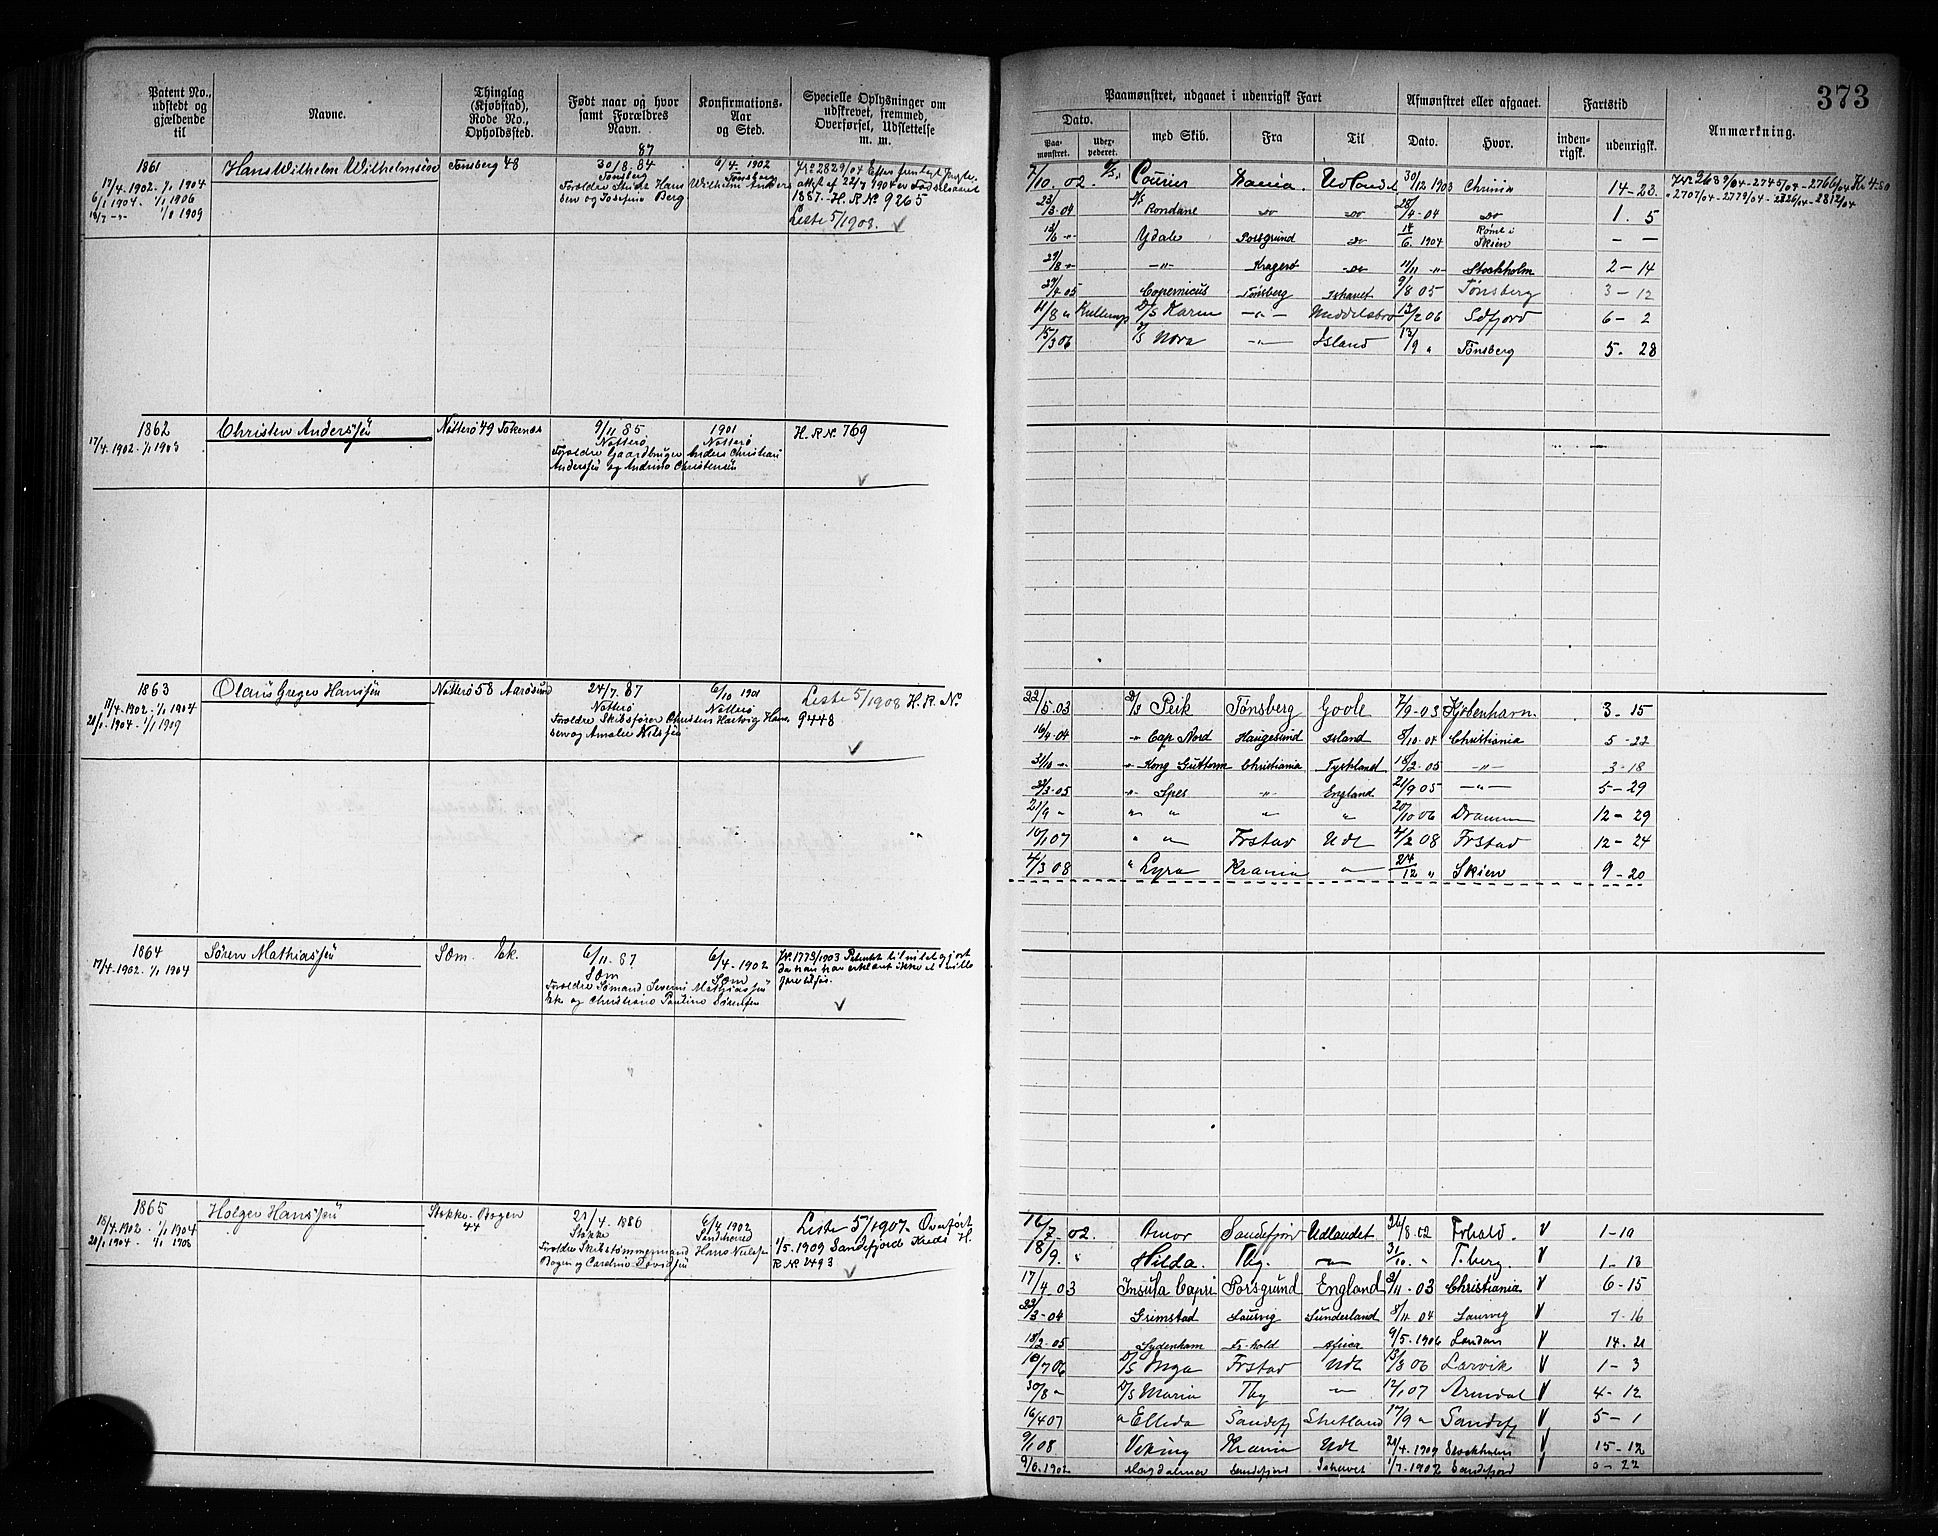 373
Patent No., udstedt og gjældende til
Navne.
Thinglag (Kjøbstad), Rode No., Opholdssted.
Født naar og hvor samt Forældres Navn.
Konfirmations-Aar og Sted.
Specielle Oplysninger om udskrevet, fremmed, Overførsel, Udslettelse m. m.
Paamønstret, udgaaet i udenrigsk Fart
Afmønstret eller afgaaet.
Fartstid
Anmærkning.
Dato.
Paa-mønstret.
med Skib.
Fra
Til
Dato.
Hvor.
inden-rigsk.
udenrigsk.
1861
17/4. 1902. 1/1 1904
6/1 1904 . 1/1 1906
1/1 1909
Hans Wilhelm Wilhelmsen
Tønsberg 48
87
30/8. 84
Tønsberg
6/4. 1902
Tønsberg
Forældre Hans Wilhelm Anders
sen og Josefine Berg
1887. H. R. No 9265
Leste 5/1908. ✓
7/10. 02. Courier Udlandet 30/12 1903 Chrinia 14-23.
23/3-04 Rondane do do 28/4-04 do 1. 5
Ydale Porsgrund do 14/6. 1904 Skien — —
29/8 " —"— Kragerø do 11/11 " Stockholm 2-14
Copernicus Tønsberg Ishavet 9/8 05 Tønsberg 3-12
D/S Karin —"— Middelsbro 12/2 06 6-2
15/3 06 D/S Nora —"— Island 13/9 " Tønsberg 5. 28
1862
17/4. 1902. 1/1 1903
Christen Anderssen
Nøtterø 49
9/11 85
Nøtterø
1901
Nøtterø
H. R. No. 769
Forældre Gaardbruger Anders Christian
Anderssen og Andrine Christensen
✓
1863
17/4. 1902. 1/1 1904
1904 . 1/1 1909
Olaus Greger Hanssen
Nøtterø 58 Aarøsund
24/7. 87
Nøtterø
6/10 1901
Nøtterø
Leste 5/1908 H. R. No.
9448
Forældre Skibsfører Christen Hartvig Hans
sen og Amalie Nilssen
✓
22/5. 03 D/S Perk Tønsberg Goole 7/9-03 Kjøbenhavn. 3-15
16/4-04 " Cap Nord Haugesund Island 8/10-04 Christiania 5-22
31/10 " " Kong Guttorm Christiania Tyskland 18/2-05 —"— 3-18
" Spes " England 21/9 05 —"— 5-29
21/9 " " " " " 20/10 06 Drammen 12-29
10/1 07 " " Frstad Udl 4/2 08 Frstad 12-24
4/3 08 " Lyra Krania " 24/12 " Skien 9-20
1864
17/4. 1902. 1/1 1904
Søren Mathiassen
Sæm. Ek.
6/11. 87
Sæm
6/4. 1902
Sæm
Jr. 1773/1903
Forældre Sømand Severin Mathiassen
Ek og Christiane Pauline Sørensen
✓
1865
18/4. 1902 . 1/1 1904
1904 . 1/1 1908
Holger Hanssen
Stokke. Bogen
44
1886
Stokke
6/4 1902
Sandeherred
Leste 5/1907. Overført
1/5. 1909 Sandefjord Kreds H.
R No 2493
Forældre Skibstømmermand Hans Nielssen
Bogen og Caroline Davidsen
✓
16/7. 02. Amor Sandefjord Udlandet 26/8. 02 Frhald. V 1-10
18/9. " Hilda. Tbg. " 31/10. " T.berg. V 1-13
17/4 03 Insula Capri Porsgrund England 2/11-03 Christiania V 6-15
22/3-04 Grimstad Laurvig Sunderland 8/11 04 Laurvig V 7-16
18/2-05 Sydenham Fr-hald Africa 9/5. 1906 London V 14. 21
10/7 06 D/S Inga Frstad Udl 13/8 06 Larvik V 1-3
30/8 " D/S Maria Tbg " 12/1 07 Arendal V 4-12
16/4 07 " Ellida Sandefj Shetland 17/9 " Sandefj V 5-1
9/1 08 Viking Krania Udl 21/4. 1909 Stockholm V 15-12
9/6. 1902 Magdalena Sandefjord Ishavet 1/7. 1902 Sandefjord V 0-22